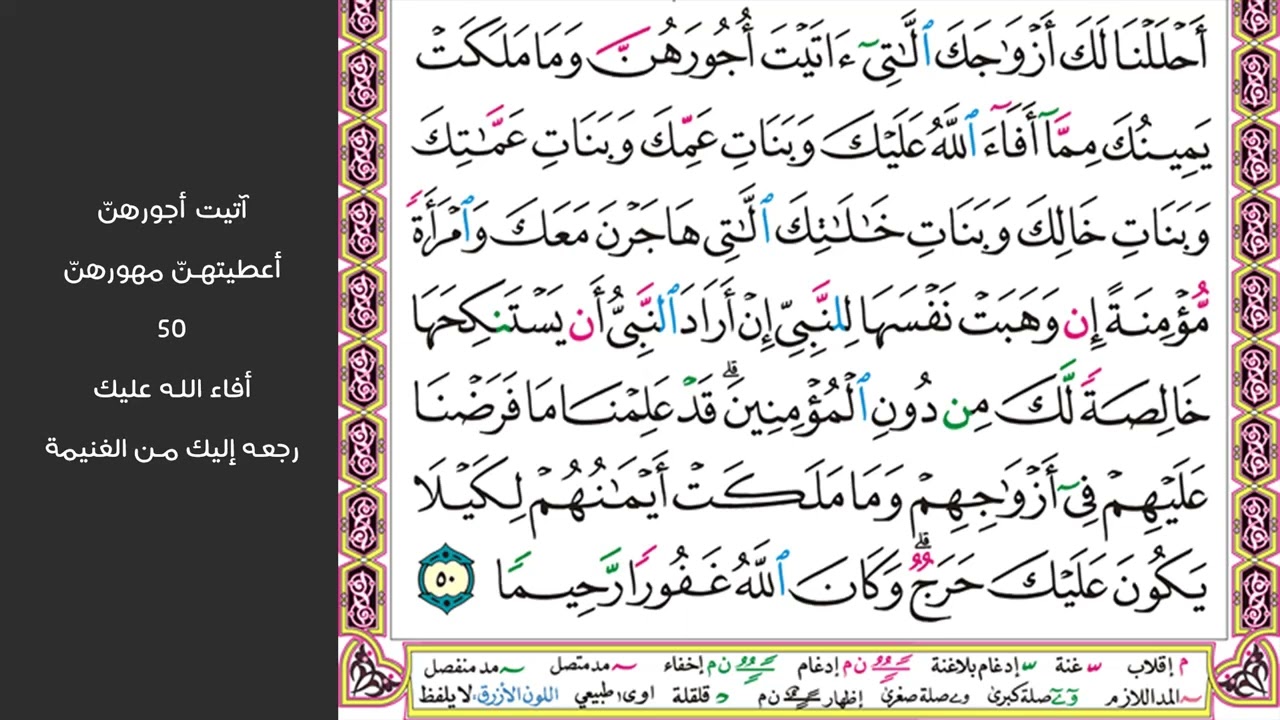 أَحْلَلْنَا لَكَ أَزْوَٰجَكَ ٱلَّٰتِىٓ ءَاتَيْتَ أُجُورَهُنَّ وَمَا مَلَكَتْ
يَمِينُكَ مِمَّآ أَفَآءَ ٱللَّهُ عَلَيْكَ وَبَنَاتِ عَمِّكَ وَبَنَاتِ عَمَّٰتِكَ
وَبَنَاتِ خَالِكَ وَبَنَاتِ خَٰلَٰتِكَ ٱلَّٰتِى هَاجَرْنَ مَعَكَ وَٱمْرَأَةً
مُّؤْمِنَةً إِن وَهَبَتْ نَفْسَهَا لِلنَّبِىِّ إِنْ أَرَادَ ٱلنَّبِىُّ أَن يَسْتَنكِحَهَا
خَالِصَةً لَّكَ مِن دُونِ ٱلْمُؤْمِنِينَ ۗ قَدْ عَلِمْنَا مَا فَرَضْنَا
عَلَيْهِمْ فِىٓ أَزْوَٰجِهِمْ وَمَا مَلَكَتْ أَيْمَٰنُهُمْ لِكَيْلَا
يَكُونَ عَلَيْكَ حَرَجٌ ۗ وَكَانَ ٱللَّهُ غَفُورًا رَّحِيمًا ٥٠
آتيت أجورهنّ
أعطيتهنّ مهورهنّ
50
أفاء الله عليك
رجعه إليك من الغنيمة
م إقلاب غنة إدغام بلاغنة ن م إدغام ن م إخفاء مد متصل مد منفصل
المد اللازم صلة كبرى صلة صغرى إظهار ن م اوى طبيعي د قلقلة اللون الأزرق لا يلفظ